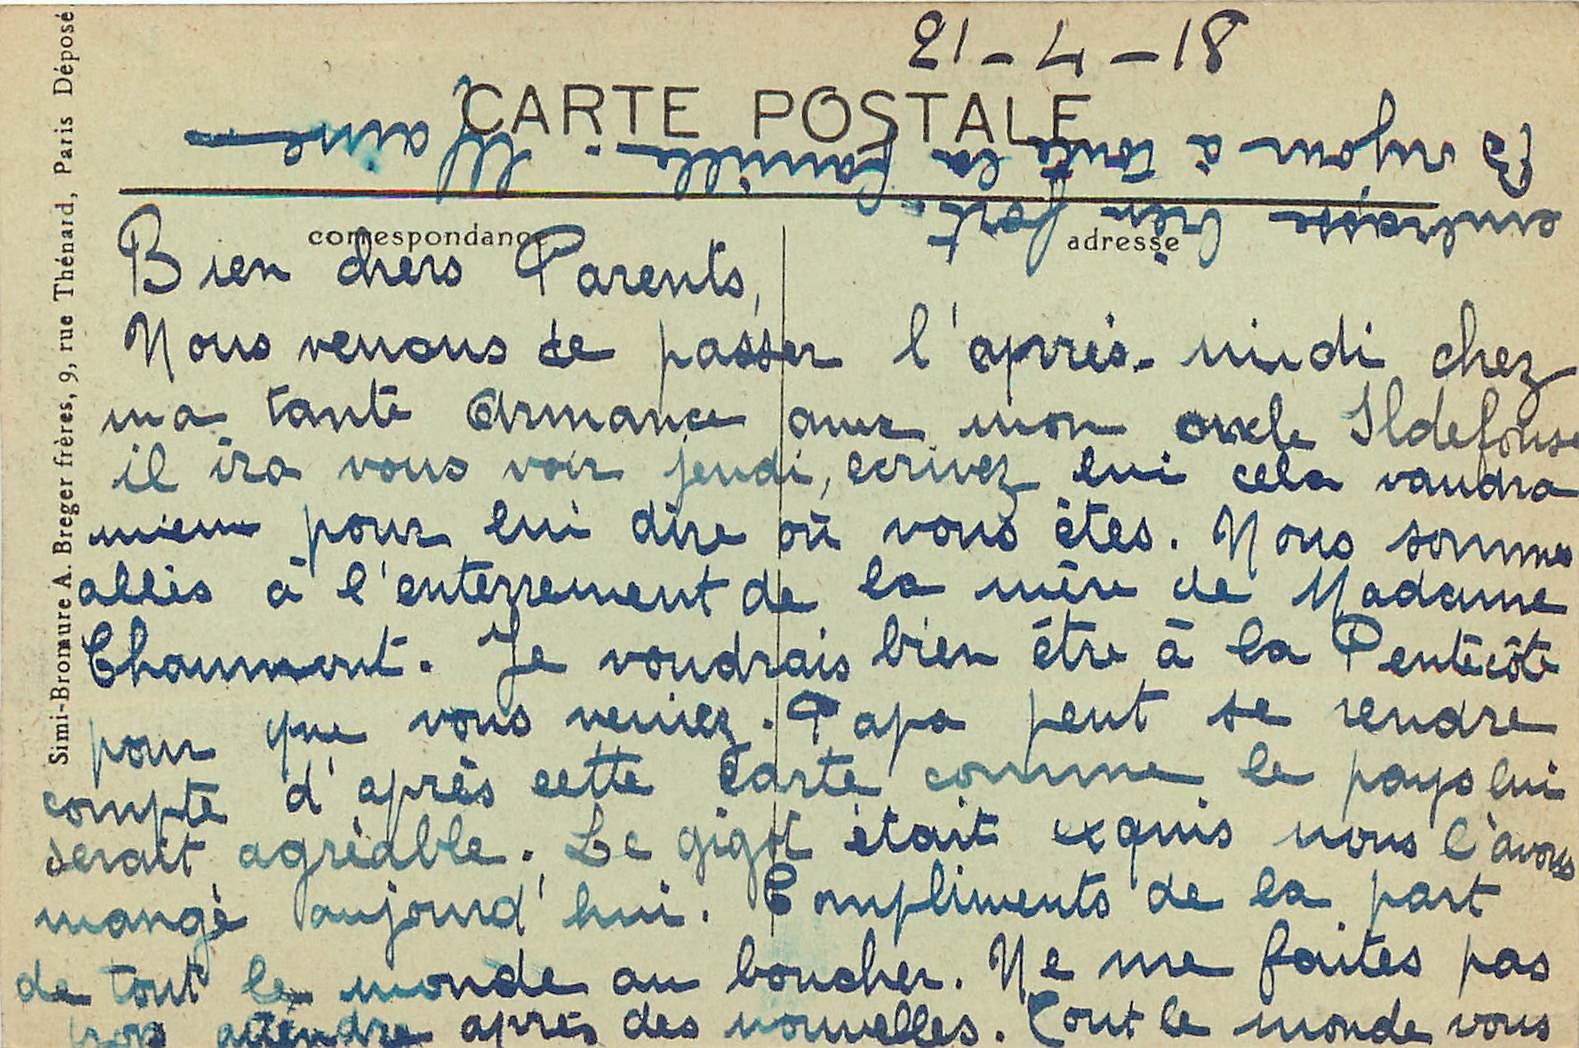 CARTE POSTALE
correspondance
adresse
Simi-Bromure A. Breger frères, 9, rue Thénard, Paris Déposé
Bien chers Parents,
Nous venons de passer l'après-midi chez
ma tante Armance avec mon oncle Ildefonse
il ira vous voir jeudi, ecrivez lui cela vaudra
mieux pour lui dire où vous êtes. Nous sommes
allés à l'enterrement de la mère de Madame
Chaumont. Je voudrais bien être à la Pentecôte
pour que vous veniez. Papa peut se rendre
compte d'après cette carte comme le pays lui
serait agréable. Le gigot était exquis nous l'avons
mangé aujourd'hui. Compliments de la part
de tout le monde au boucher. Ne me faites pas
trop attendre après des nouvelles. Tout le monde vous
embrasse bien fort.
Bonjour à toute la famille.